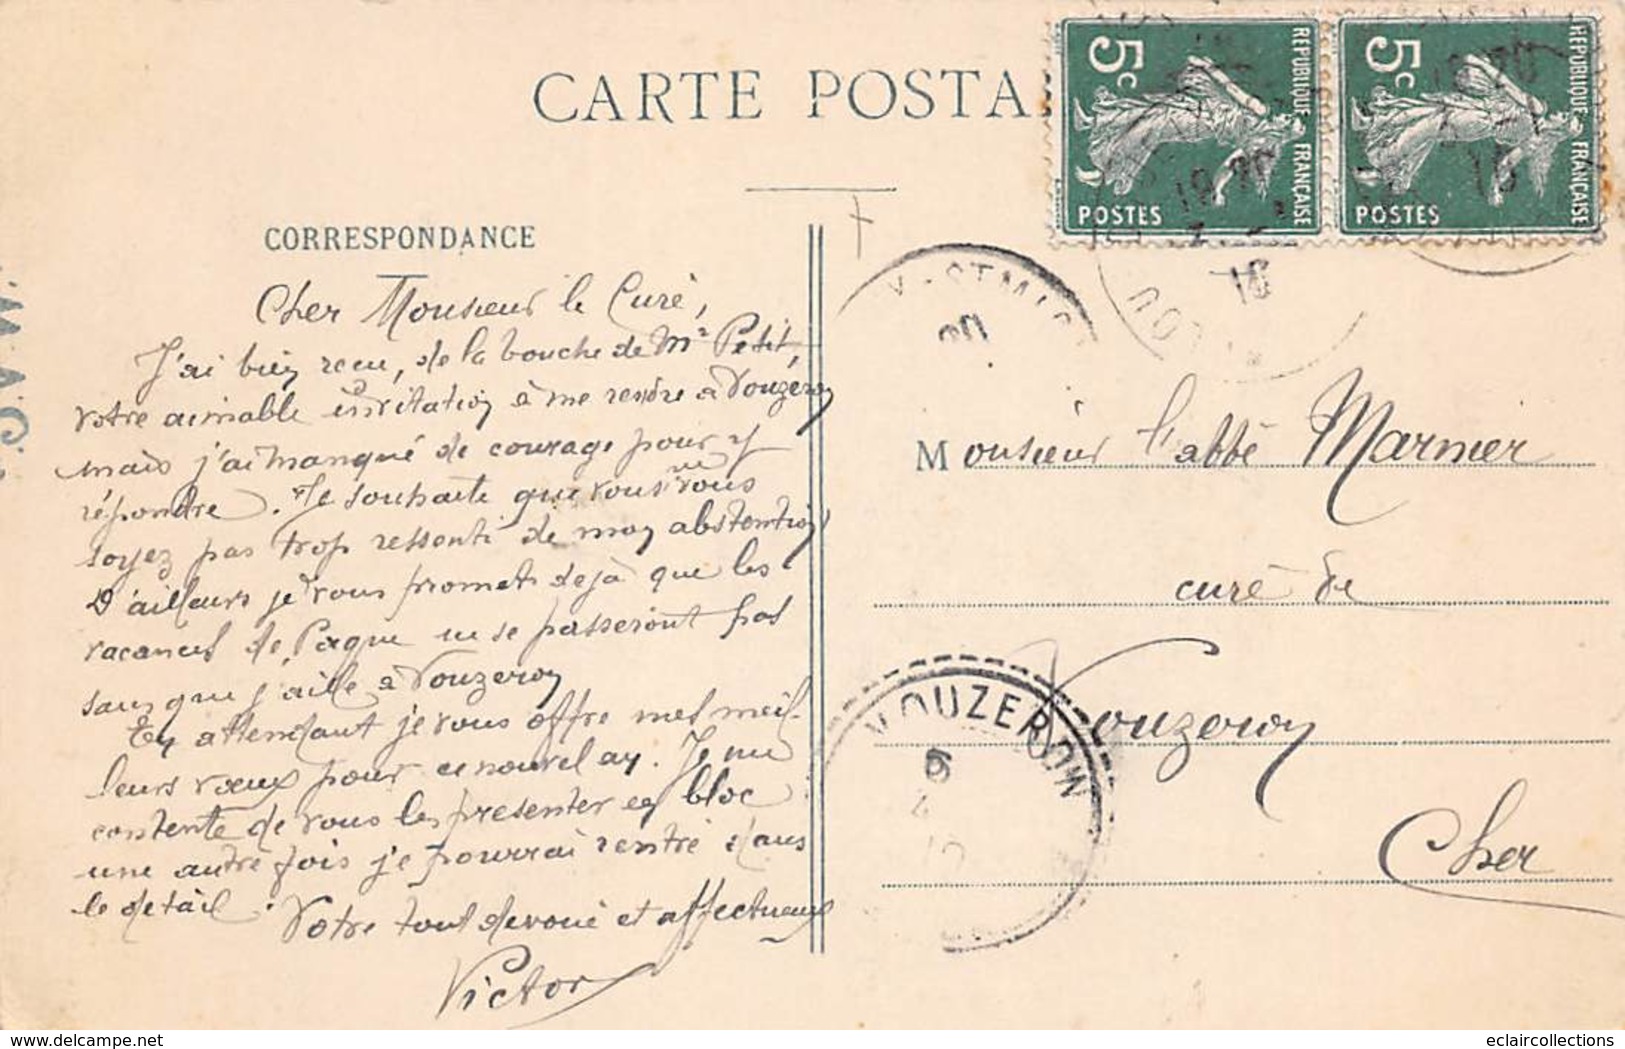 CARTE POSTA
5c
REPUBLIQUE FRANÇAISE
POSTES
5c
REPUBLIQUE FRANÇAISE
POSTES
CORRESPONDANCE
Cher Monsieur le Curé,
J'ai bien recu, de la bouche de Mr Petit,
votre aimable invitation à me rendre à Vouzeron
mais j'ai manqué de courage pour y
répondre. Je souhaite que vous ne vous
soyez pas trop ressenti de mon abstention
D'ailleurs je vous promets déjà que les
vacances de Paque ne se passeront pas
sans que j'aille à Vouzeron
En attendant je vous offre mes meil-
leurs vœux pour ce nouvel an. Je me
contente de vous les présenter en bloc
une autre fois je pourrai rentré dans
le détail.
Votre tout dévoué et affectueux
Victor
Monsieur l'abbé Marmier
curé de
Vouzeron
Cher
VOUZERON
6
4
eclaircollections